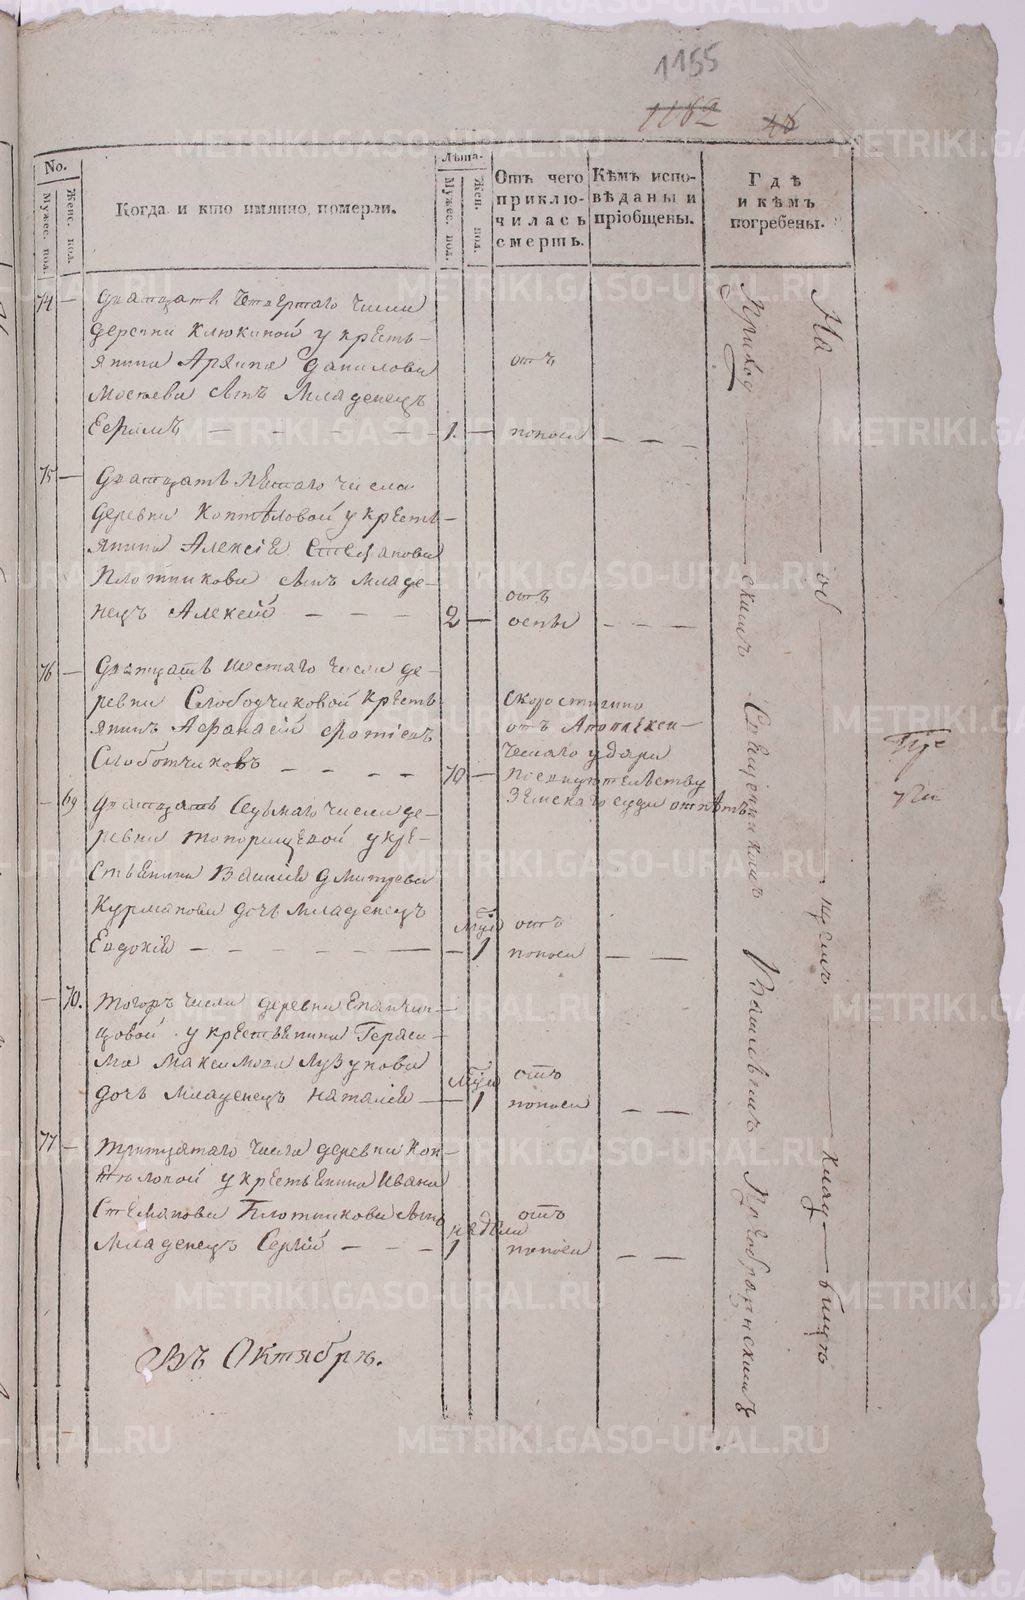 1155
1162
46
No.
Мужес. пол.
Женс. пол.
Когда и кто имянно померли.
Лѣта.
Мужес. пол.
Жен. пол.
Отъ чего приключилась смерть.
Кѣмъ исповѣданы и пріобщены.
Гдѣ и кѣмъ погребены.
74 — Дватцать четвертаго числа
деревни Клюкиной у кресть-
янина Архипа Данилова
сынъ младенецъ
Ефримъ — 1. — отъ поноса — — —
75 — Дватцать пятаго числа
деревни Коптѣловой у кресть-
янина Алексѣя Степанова
Плотникова сынъ младе-
нецъ Алексей — — — 2 — отъ оспы — — —
76 — Дватцать шестаго числа де-
ревни Слободчиковой кресть
янинъ Афанасій Фотіевъ
Слоботчиковъ — — — — 70 —
Скоропостижно
отъ Апоплекси-
ческаго удара
По свидѣтельству
Земскаго суда отпѣтъ
— 69 Дватцать Седьмаго числа де-
ревни Топорищевой у кре-
стьянина Василія Дмитрева
Курманова дочь младенецъ
Евдокія — — — — 1 отъ поноса — —
— 70. Тогожъ числа деревни Епанчин-
цовой у крестьянина Гераси-
ма Максимова Лузунова
дочь младенецъ Наталія — 1 отъ поноса — —
77 — Тритцатаго числа деревни Коп-
тѣловой у крестьянина Ивана
Степанова Плотникова сынъ
младенецъ Сергій — — — недели 1 отъ поноса — —
Въ Октябрѣ.
На — об — щемъ — клад — бищѣ
Приход — скимъ Священникомъ Васильемъ Преображенскимъ
METRIKI.GASO-URAL.RU